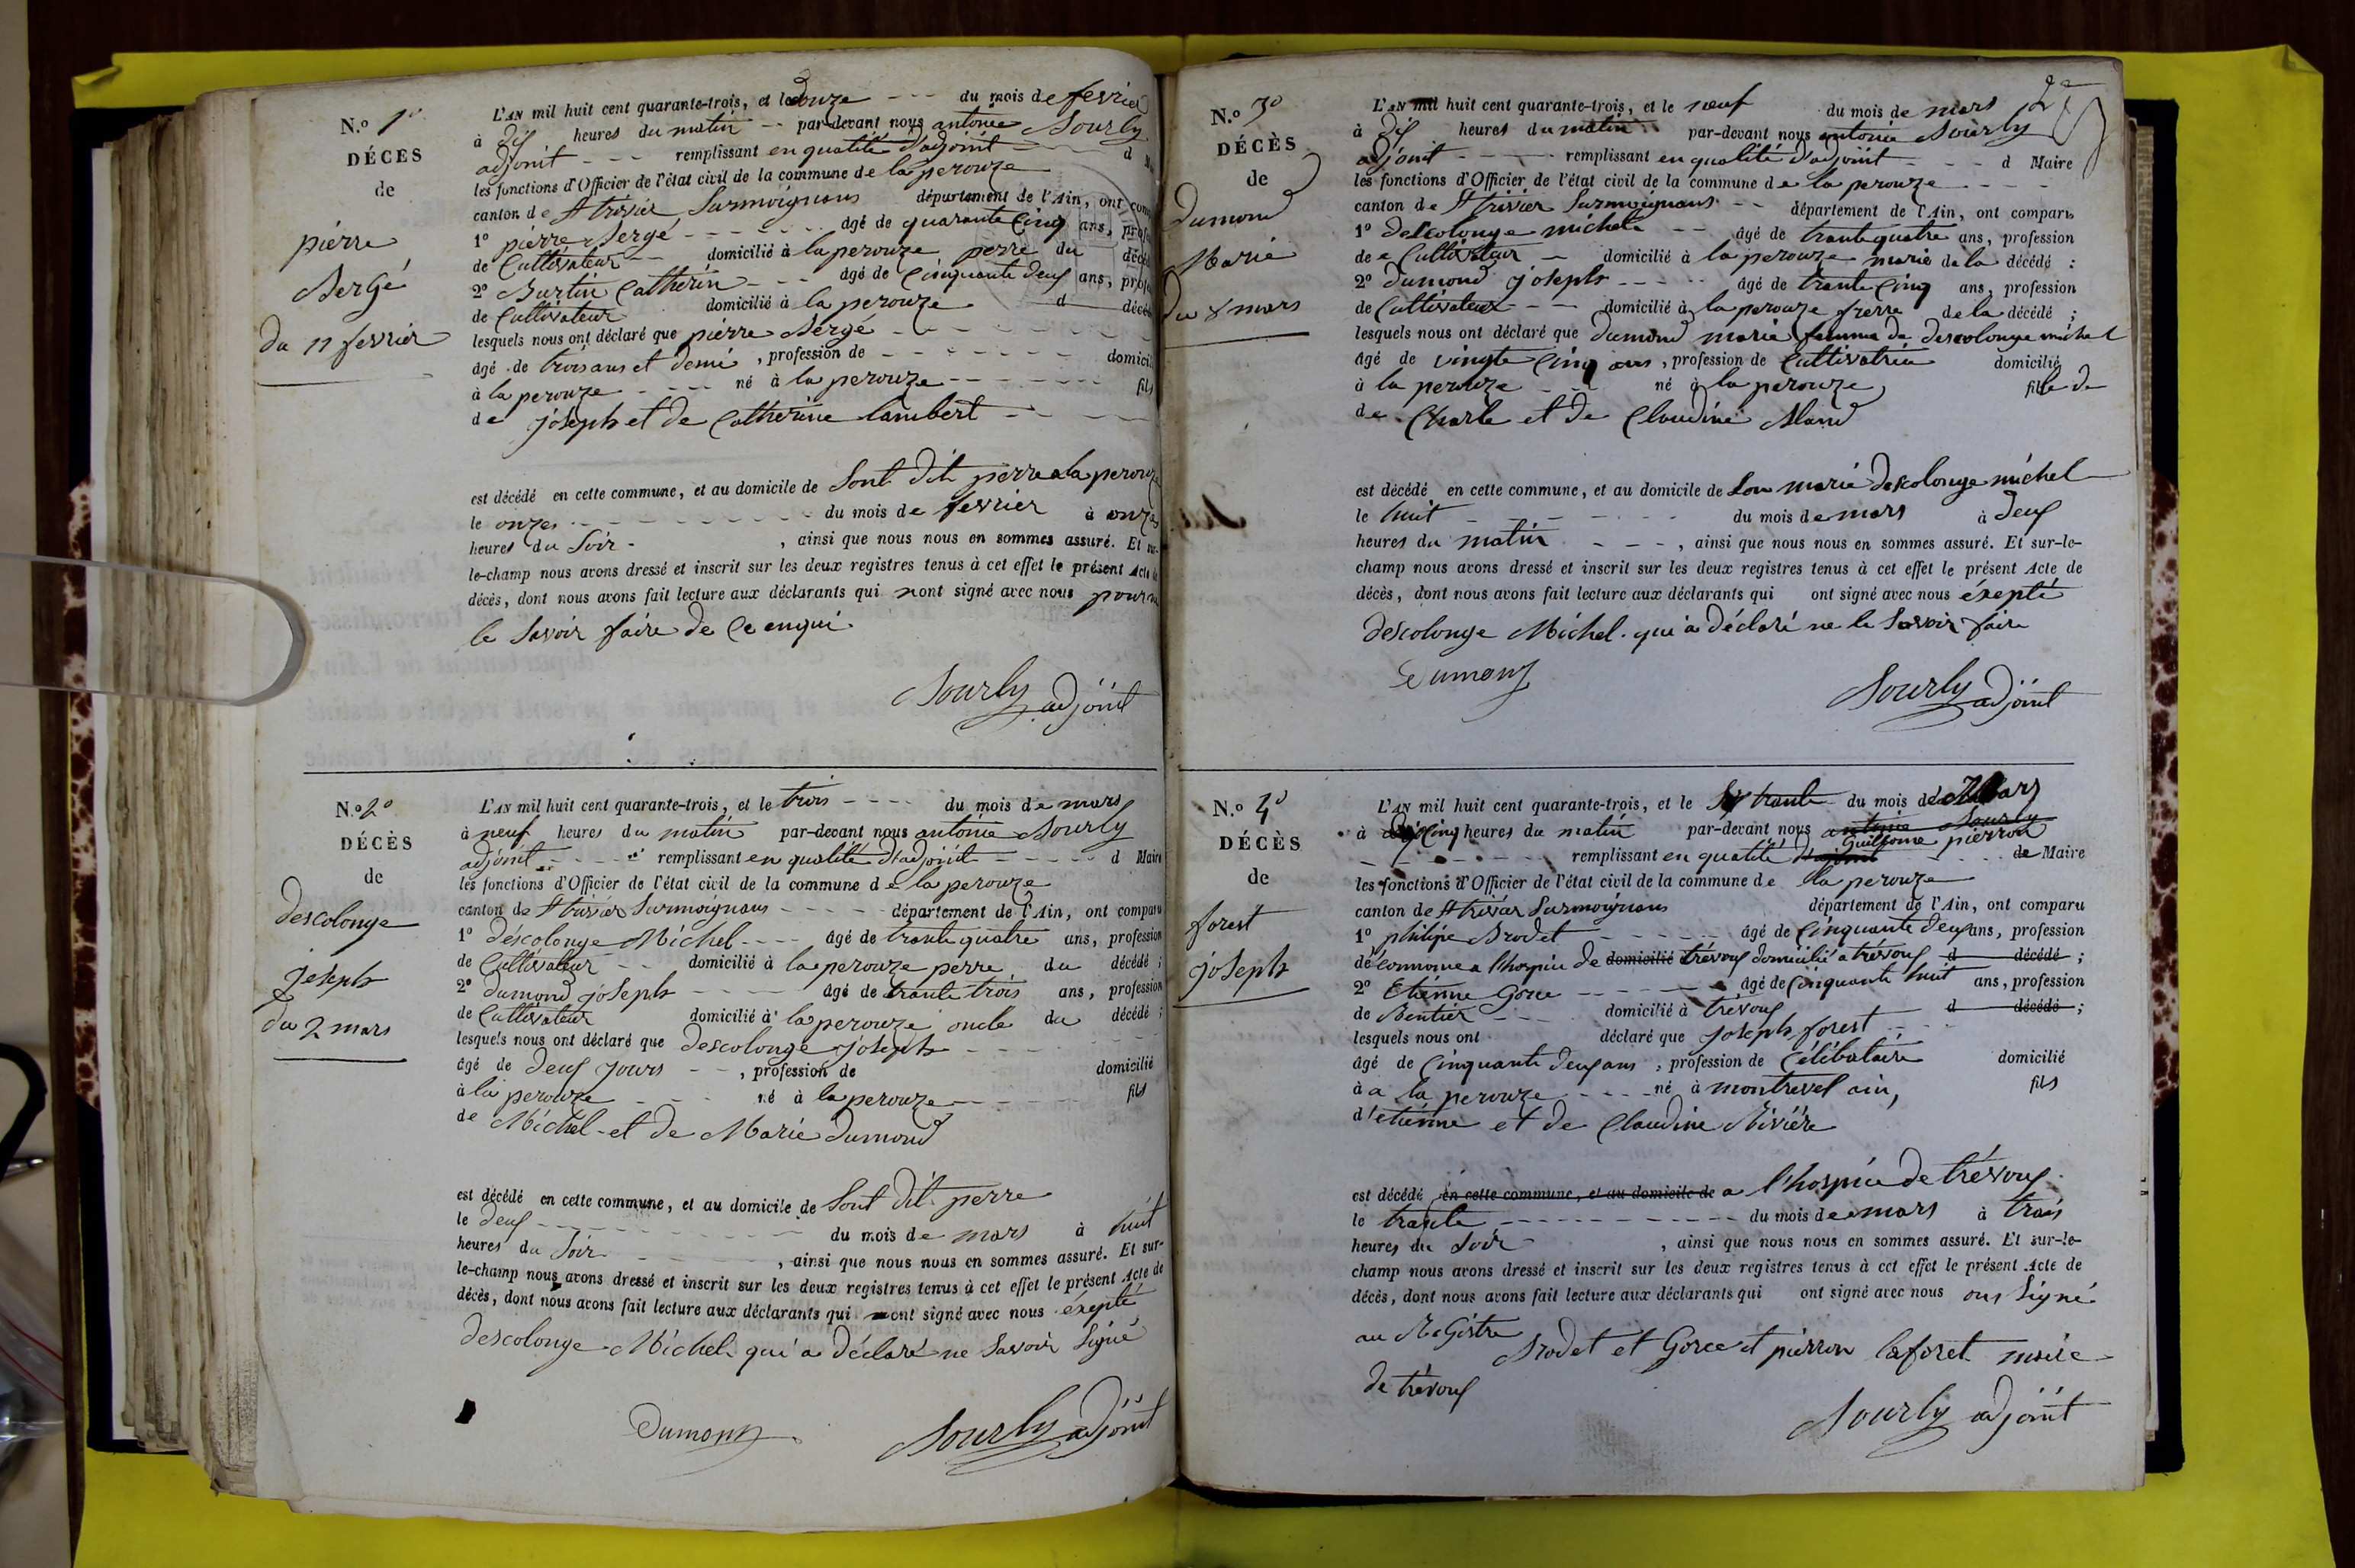 N.o 1o
DÉCÈS
de
pierre
Sergé
du 11 fevrier
L'AN mil huit cent quarante-trois, et le douze --- du mois de fevrier
à dix heures du matin -- par-devant nous antoine Sourly
adjoint --- remplissant en qualité d'adjoint - d
les fonctions d'Officier de l'état civil de la commune de la perouze
canton de St trivier Surmoignans département de l'Ain, ont
1o pierre Sergé ------ âgé de quarante cinq ans,
de Cultivateur -- domicilié à la perouze perre du
2o Burtin Catherin --- âgé de Cinquante deux ans,
de Cultivateur domicilié à la perouze d
lesquels nous ont déclaré que pierre Sergé ------
âgé de trois ans et demi, profession de ------
à la perouze ---- né à la perouze ------ fils
de joseph et de Catherine lambert ---
est décédé en cette commune, et au domicile de Sont dit pierre a la perouze
le onze ------ du mois de fevrier à onze
heures du Soir - , ainsi que nous nous en sommes assuré. Et
le-champ nous avons dressé et inscrit sur les deux registres tenus à cet effet le présent Acte de
décès, dont nous avons fait lecture aux déclarants qui n'ont signé avec nous pour ne
le Savoir faire de Ce enqui
Sourly adjoint
N.o 2o
DÉCÈS
de
descolonge
joseph
du 2 mars
L'AN mil huit cent quarante-trois, et le trois ---- du mois de mars
à neuf heures du matin par-devant nous antoine Sourly
adjoint ---- remplissant en qualité d'adjoint ----- d Maire
les fonctions d'Officier de l'état civil de la commune de la perouze
canton de St trivier Surmoignans ---- département de l'Ain, ont comparu
1o déscolonge Michel ---- âgé de trante quatre ans, profession
de Cultivateur -- domicilié à la perouze perre du décédé ;
2o dumond joseph ---- âgé de trante trois ans, profession
de Cultivateur domicilié à la perouze oncle du décédé ;
lesquels nous ont déclaré que descolonge joseph ----
âgé de deux jours -- , profession de domicilié
à la perouze --- né à la perouze ---- fils
de Michel et de Marie dumond
est décédé en cette commune, et au domicile de Sont dit perre
le deux ------ du mois de mars à huit
heures du Soir ------ , ainsi que nous nous en sommes assuré. Et sur-
le-champ nous avons dressé et inscrit sur les deux registres tenus à cet effet le présent Acte de
décès, dont nous avons fait lecture aux déclarants qui ont signé avec nous éxepté
descolonge Michel qui a déclaré ne Savoir Signé
Dumond Sourly adjoint
N.o 3o
DÉCÈS
de
dumond
Marie
du 8 mars
L'AN mil huit cent quarante-trois, et le neuf du mois de mars
à dix heures du matin par-devant nous antoine Sourly
adjoint ---- remplissant en qualité d'adjoint --- d Maire
les fonctions d'Officier de l'état civil de la commune de la perouze ----
canton de St trivier Surmoignans -- département de l'Ain, ont comparu
1o descolonge michel -- âgé de trante quatre ans, profession
de Cultivateur - domicilié à la perouze marie de la décédé ;
2o dumond joseph ---- âgé de trante Cinq ans, profession
de Cultivateur -- domicilié à la perouze frerre de la décédé ;
lesquels nous ont déclaré que dumond marie femme de descolonge michel
âgé de vingte Cinq ans, profession de Cultivatrice domicilié
à la perouze -- né à la perouze fille de
de Charle et de Claudine
est décédé en cette commune, et au domicile de Son marie descolonge michel
le huit ------ du mois de mars à deux
heures du matin --- , ainsi que nous nous en sommes assuré. Et sur-le-
champ nous avons dressé et inscrit sur les deux registres tenus à cet effet le présent Acte de
décès, dont nous avons fait lecture aux déclarants qui ont signé avec nous éxepté
descolonge Michel qui a déclaré ne le Savoir faire
Dumond
Sourly adjoint
N.o 4o
DÉCÈS
de
forest
joseph
L'AN mil huit cent quarante-trois, et le trante du mois de Mars
à Cinq heures du matin par-devant nous antoine Sourly
Guilhome pierron
------ remplissant en qualité d'adjoint --- de Maire
les fonctions d'Officier de l'état civil de la commune de la perouze
canton de St trivier Surmoignans département de l'Ain, ont comparu
1o philipe Brodet ------ âgé de Cinquante deux ans, profession
de econnome a l'hospice de domicilié trévoux domicilié a trévoux d décédé ;
2o Etienne Gorce ------ âgé de Cinquante huit ans, profession
de Rentier --- domicilié à trévoux d décédé ;
lesquels nous ont déclaré que joseph forest ---
âgé de Cinquante deux ans ; profession de Célibataire domicilié
à a la perouze ---- né à montrevel ain, fils
d'etienne et de Claudine Riviére
est décédé en cette commune, et au domicile de a l'hospice de trévoux
le trante ------ du mois de mars à trois
heures du Soir , ainsi que nous nous en sommes assuré. Et sur-le-
champ nous avons dressé et inscrit sur les deux registres tenus à cet effet le présent Acte de
décès, dont nous avons fait lecture aux déclarants qui ont signé avec nous ons Signé
au ReGistre Brodet et Gorce et pierron laforet maire
de trévoux
Sourly adjoint